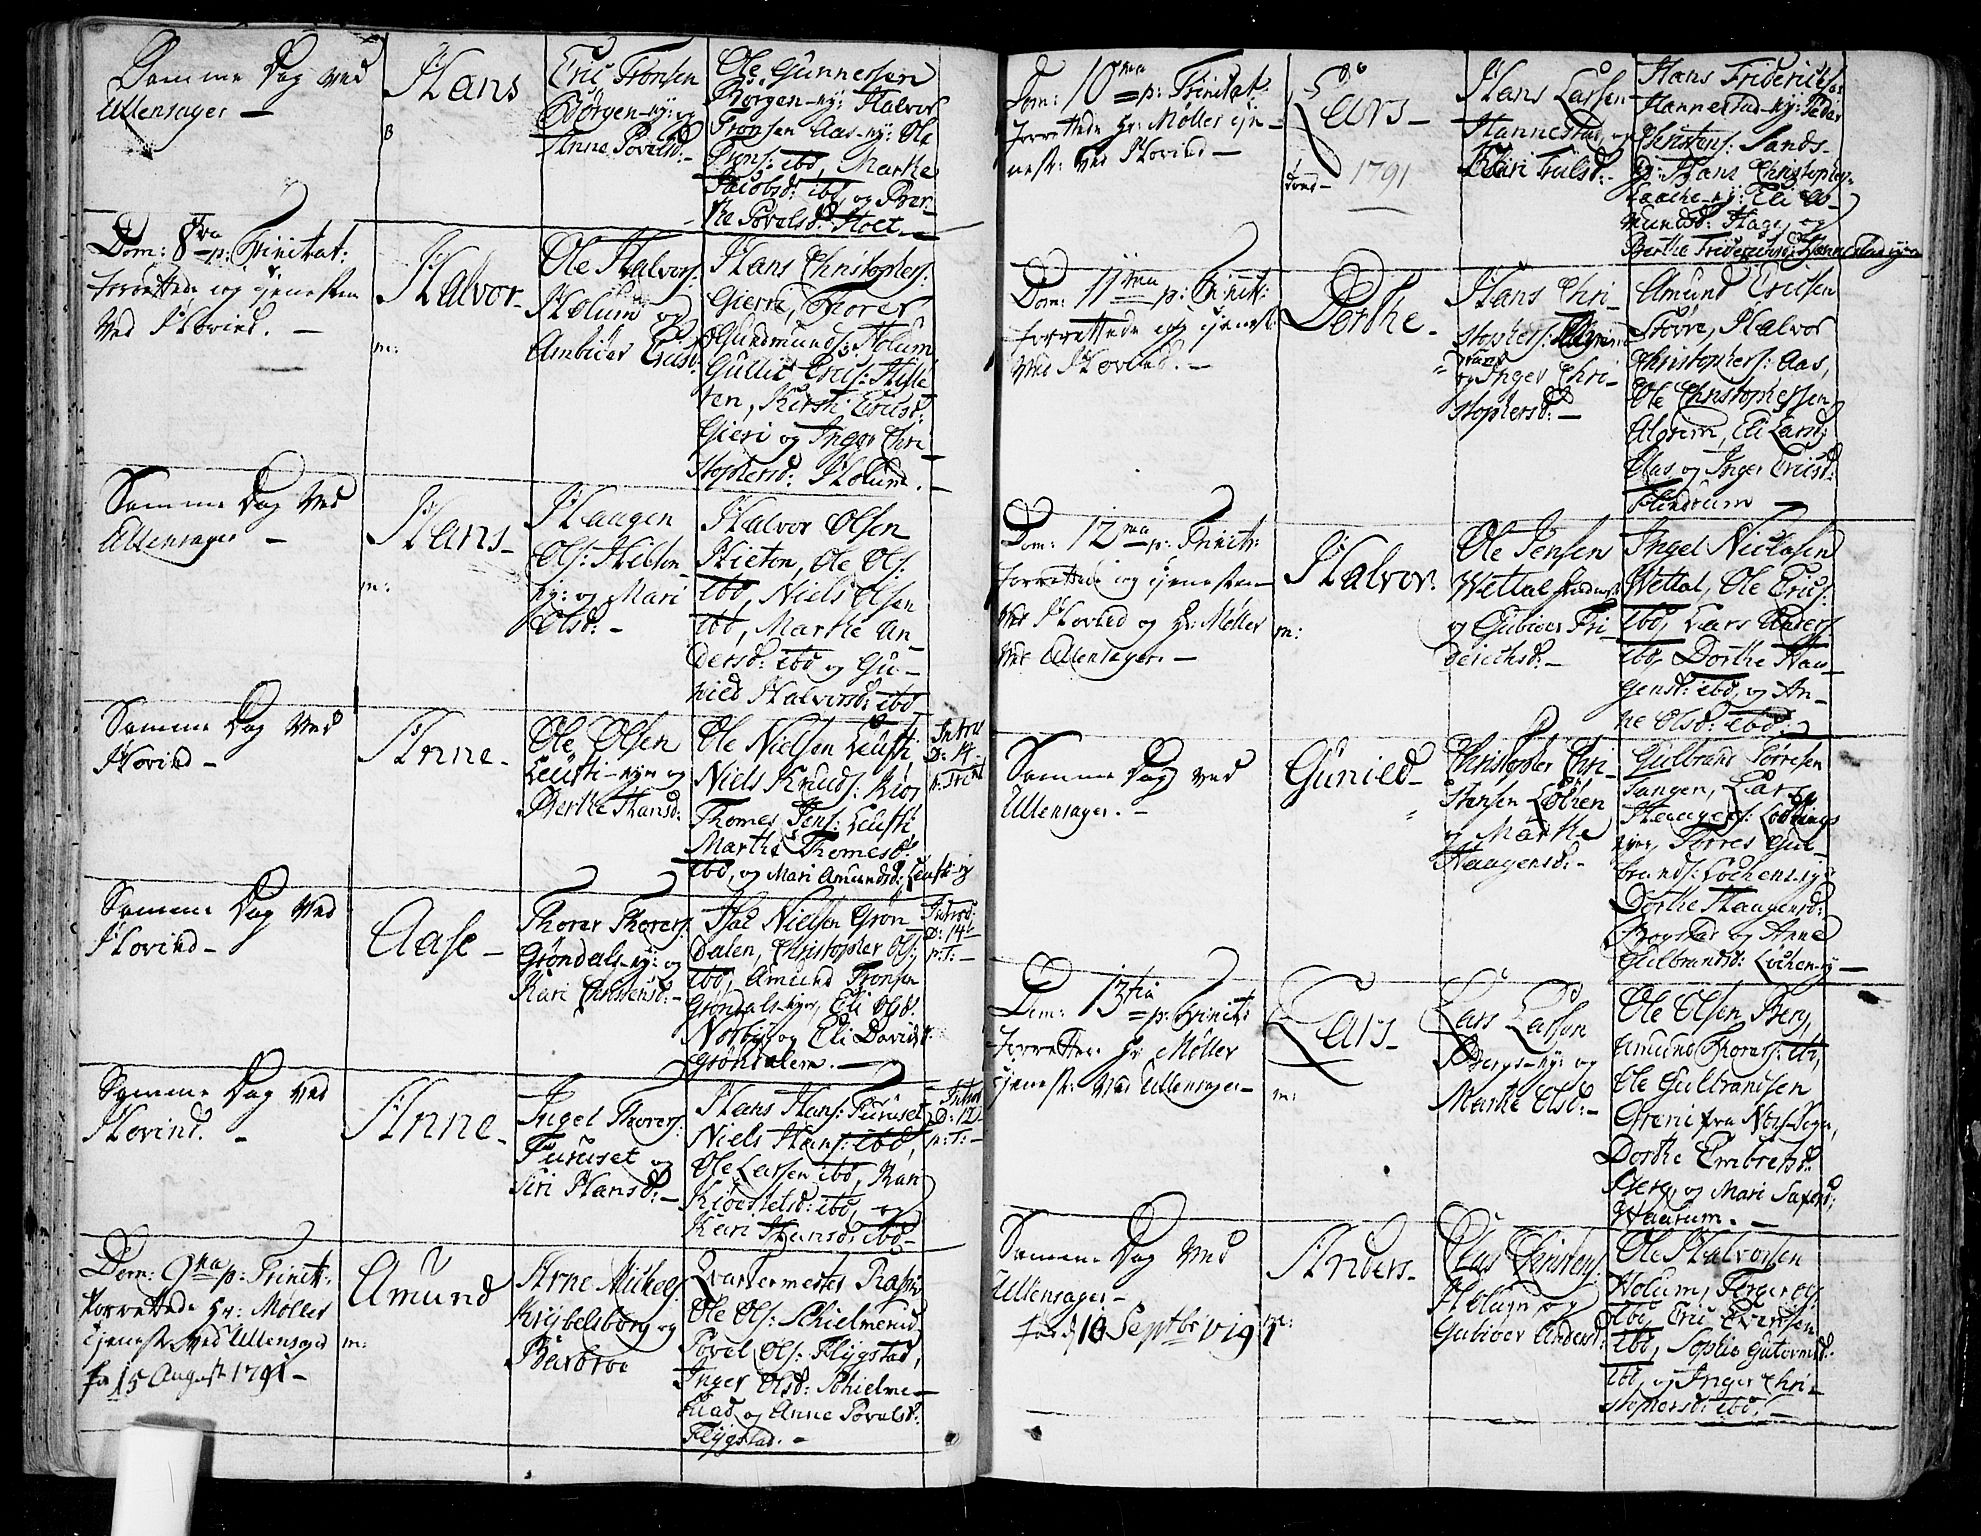 Samme Dag ved
Ullensager —
Hans
B
Eric Tronsen
Borgen-ny: og
Anne Povelsd: -
Ole Gunnessen
Borgen-ny: Halvor
Tronsen Aas-ny: Ole
Trons: ibd, Marthe
Jacobsd: ibd, og Ber-
the Povelsd: Holt. —
Dom: 8va p: Trinitat:
forrettede ieg tjenesten
ved Hovind. —
Halvor-
m:
Ole Halvors:
Holum og
Ambiør Ericsd:
Hans Christophers:
Gierre, Thorer
Gundmunds: Holum
Gullic Erics:
ten, Kirsti Ericsd:
Gieri og Inger Chri-
stophersd: Holum. —
Samme Dag ved
Ullensager —
Hans-
m:
Haagen
Ols: Hilton-
ny: og Mari
Olsd: -
Halvor Olsen
Hilton, Ole Ols:
ibd, Niels Olsen
ibd, Marthe An-
dersd: ibd og Gu-
nild Halvorsd: ibd
Samme Dag ved
Hovind —
Anne-
Ole Olsen
Leusti-nye og
Berthe Hansd:
Ole Nielsen Leusti,
Niels Knuds: Kios
Thomes Jens: Leusti
Marthe Thomesd:
ibd, og Mari Amundsd: Leusti-ny
Introd
D: 14
p: Trinit
Samme Dag ved
Hovind —
Aase —
Thorer Thorers:
Grøndals-ny: og
Kari Christensd: -
Nielsen Grøn-
dalen, Christopher Ols:
ibd, Amund Tronsen
Grøndals-nye, Eli Olsd:
Norby og Eli Davidsd:
Grøndalen. —
Introd:
D: 14
p: T: —
Samme Dag ved
Hovind. —
Anne-
Ingel Thorers:
Furuset og
Siri Hansd: -
Hans Hans: Furuset
Niels Hans: ibd,
Ole Larsen ibd, Kari
Kioestelsd: ibd, og
Kari Hansd: ibd-
Introd
D: 12
p: T: -
Dom: 9na p: Trinit:
forrettede Hr: Møller
tjenest: ved Ullensager
fø 15 August 1791-
Amund
m:
Arne Mickels:
Krybelsborg og
Barbroe
Qvartermester Rasch
Ole Ols: Schielmerud
Povel Ols: Flygstad,
Inger Olsd: Schielme-
ruad og Anne Povelsd:
Flygstad. —
Dom: 10ma p: Trinitat:
forrettede Hr: Møller tje-
nest: ved Hovind —
Lars-
1791
Hans Larsen
Hannestad og
Kari Trulsd: -
Hans Friderichsen
Hannestad-ny: Peder
Christens: Sands-
Hans Christopher
Eli A-
mundsd: Hage, og
Berthe Friderichsd: Hannestad-nye
Dom: 11ma p: Trinit:
forrettede ieg tjenest:
ved Hovind. —
Dorthe-
Hans Chri-
stophers: Algrim
og Inger Chri-
stophersd: —
Amund Ericsen
Støvre, Halvor
Christophers: Aas,
Ole Christophersen
Algrim, Eli Larsd:
Aas og Inger Ericsd:
Flindrum —
Dom: 12ma p: Trinit:
forrettede ieg tjenesten
ved Hovind og Hr: Møller
ved Ullensager. —
Halvor.
m:
Ole Jensen
Wettal
og Gubiør Fri
derichsd: -
Ingel Niclasen
Wettal, Ole Erics:
ibd, Lars Anders
ibd, Dorthe Haa-
gensd: ibd, og An-
ne Olsd: ibd. -
Samme Dag ved
Ullensager. —
Gunild-
Christopher Chri-
stensen Løchen
og Marthe
Haagensd: -
Gulbrand Torresen
Tangen, Lars
Haagens: Løchens
nye, Torres Gul-
brands: Lochens-ny
Dorthe Haagensd:
og Anne
Gulbrandsd: Lochen-ny —
Dom: 13tia p: Trinit:
forrettede Hr Møller
tjenest: ved Ullensager-
Lars-
m:
Lars Larsen
Bergs-ny: og
Marthe Olsd: -
Ole Olsen Berg,
Amund Thorers: ib,
Ole Gulbrandsen
Greni fra
Dorthe Embretsd:
Berg, og Mari
Haarum. —
Samme Dag ved
Ullensager —
fød 10 Septbr 1791
Anders-
m:
Claus Christens:
Holum og
Gubiøer Andersd:
Ole Halvorsen
Holum, Torger Ols:
ibd, Eric Evensen
ibd, Sophie Gutormsd:
ibd, og Inger Chri-
stophersd: ibd. -